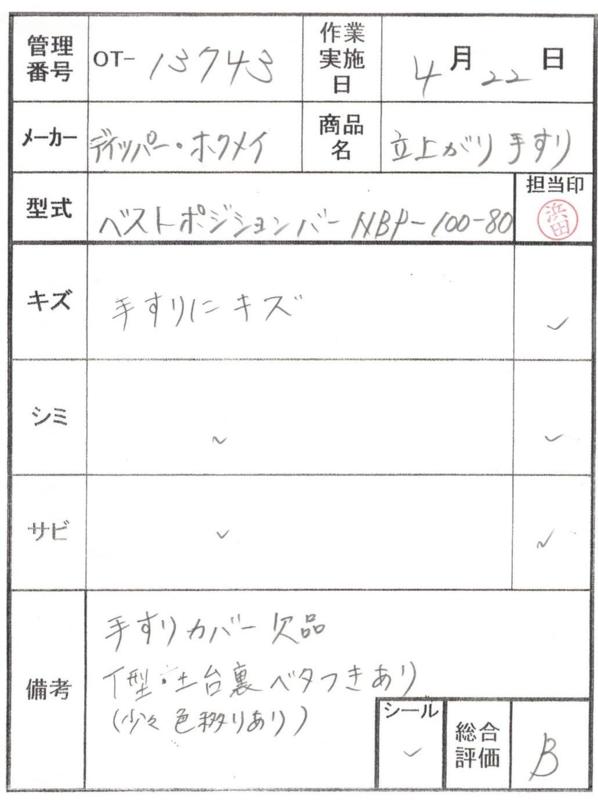 管理番号 OT- 13743 作業実施日 4月22日
メーカー ディッパー・ホクメイ 商品名 立上がり手すり
型式 ベストポジションバー HBP-100-80 担当印 浜田
キズ 手すりにキズ ✓
シミ 〜 ✓
サビ ✓ ✓
備考 手すりカバー欠品
T型・土台裏ベタつきあり
(少々色移りあり)
シール ✓ 総合評価 B